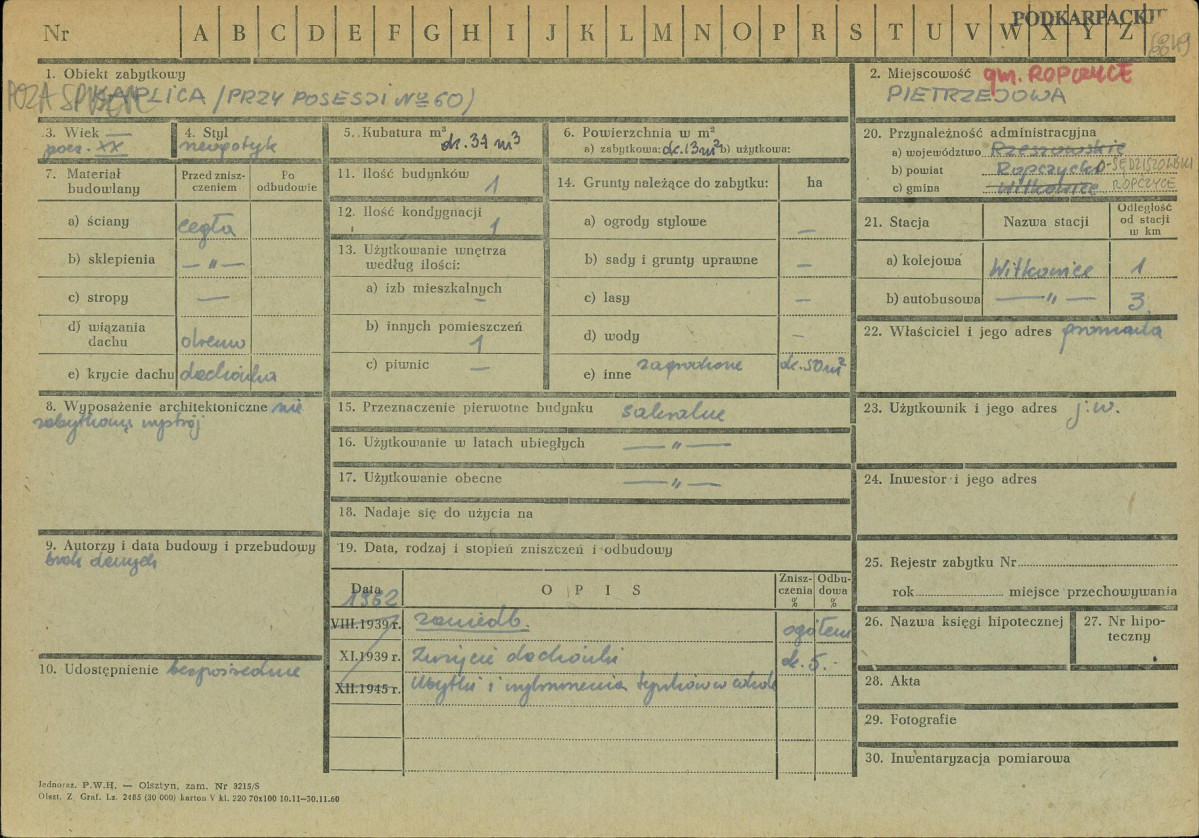 PODKARPACKIE
Nr A B C D E F G H I J K L M N O P R S T U V W X Y Z
1. Obiekt zabytkowy
POZA SPISEM
KAPLICA /PRZY POSESJI No 60)
2. Miejscowość gm. ROPCZYCE
PIETRZEJOWA
3. Wiek —
pocz. XX
4. Styl
neogotyk
5. Kubatura m³
ok. 37 m³
6. Powierzchnia w m²
a) zabytkowa: ok. 13 m² b) użytkowa:
20. Przynależność administracyjna
a) województwo Rzeszowskie
b) powiat Ropczycko-SĘDZISZOWSKI
c) gmina Witkowice ROPCZYCE
7. Materiał budowlany
Przed zniszczeniem
Po odbudowie
a) ściany cegła
b) sklepienia — „ —
c) stropy —
d) wiązania dachu drewno
e) krycie dachu dachówka
11. Ilość budynków 1
12. Ilość kondygnacji 1
13. Użytkowanie wnętrza według ilości:
a) izb mieszkalnych –
b) innych pomieszczeń 1
c) piwnic –
14. Grunty należące do zabytku: ha
a) ogrody stylowe –
b) sady i grunty uprawne –
c) lasy –
d) wody –
e) inne zagrodzone ok. 50 m²
21. Stacja
Nazwa stacji
Odległość od stacji w km
a) kolejowa Witkowice 1
b) autobusowa — „ — 3
22. Właściciel i jego adres gromada
8. Wyposażenie architektoniczne nie
zabytkowy wystrój
15. Przeznaczenie pierwotne budynku sakralne
16. Użytkowanie w latach ubiegłych — „ —
17. Użytkowanie obecne — „ —
18. Nadaje się do użycia na
23. Użytkownik i jego adres j.w.
24. Inwestor i jego adres
9. Autorzy i data budowy i przebudowy
brak danych
10. Udostępnienie bezpośrednie
19. Data, rodzaj i stopień zniszczeń i odbudowy
Data
OPIS
Zniszczenia %
Odbudowa %
1962
VIII.1939 r. zaniedb. ogółem
XI.1939 r. Zużycie dachówki ok. 5.-
XII.1945 r. Ubytki i wykruszenia tynków w cokole
25. Rejestr zabytku Nr
rok miejsce przechowywania
26. Nazwa księgi hipotecznej
27. Nr hipoteczny
28. Akta
29. Fotografie
30. Inwentaryzacja pomiarowa
Jednoraz. P.W.H. — Olsztyn, zam. Nr 3215/S
Olszt. Z. Graf. Lz. 2485 (30 000) karton V kl. 220 70x100 10.11—30.11.60